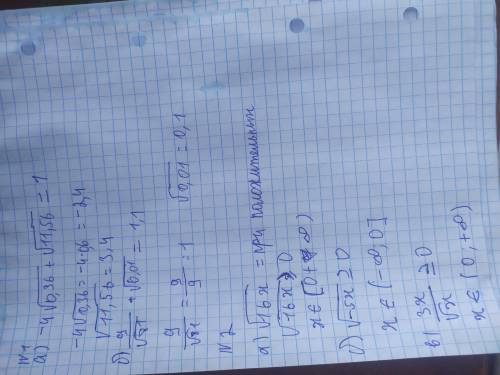 N1
а) -4√0,36 + √11,56 = 1
-4√0,36 = -4·0,6 = -2,4
√11,56 = 3,4
б) 9/√81 + √0,01 = 1,1
9/√81 = 9/9 = 1 √0,01 = 0,1
N2
а) √16x = при положительных
√16x ≥ 0
x ∈ [0 + ∞)
б) √-5x ≥ 0
x ∈ (-∞, 0]
в) 3x/√x ≥ 0
x ∈ (0, +∞)